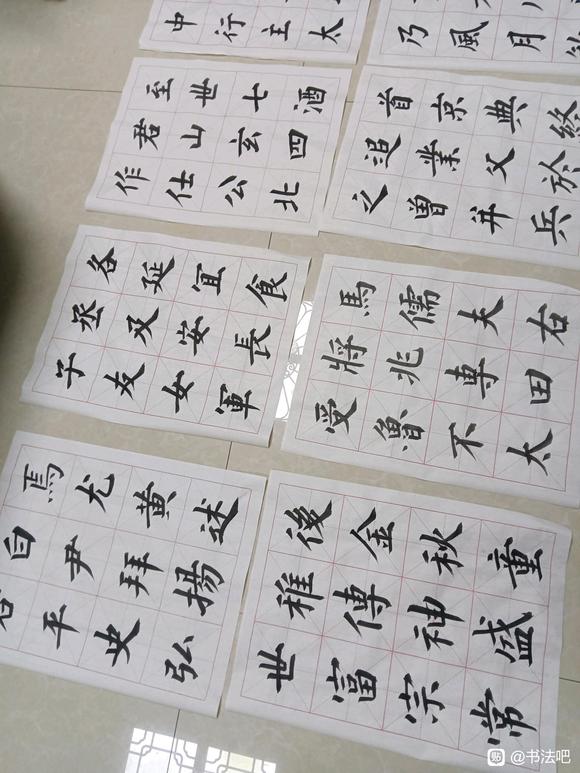 中行主太
乃風月
至世七酒
君山玄四
作仕公北
首京典終
追業父於
之曾并兵
各延宜食
丞安長
子友女軍
馬儒夫右
將兆専田
受魯不太
焉尤黄述
白尹拜揚
平史弘
後金秋重
稚傳神盛
世富宗常
貼 @书法吧